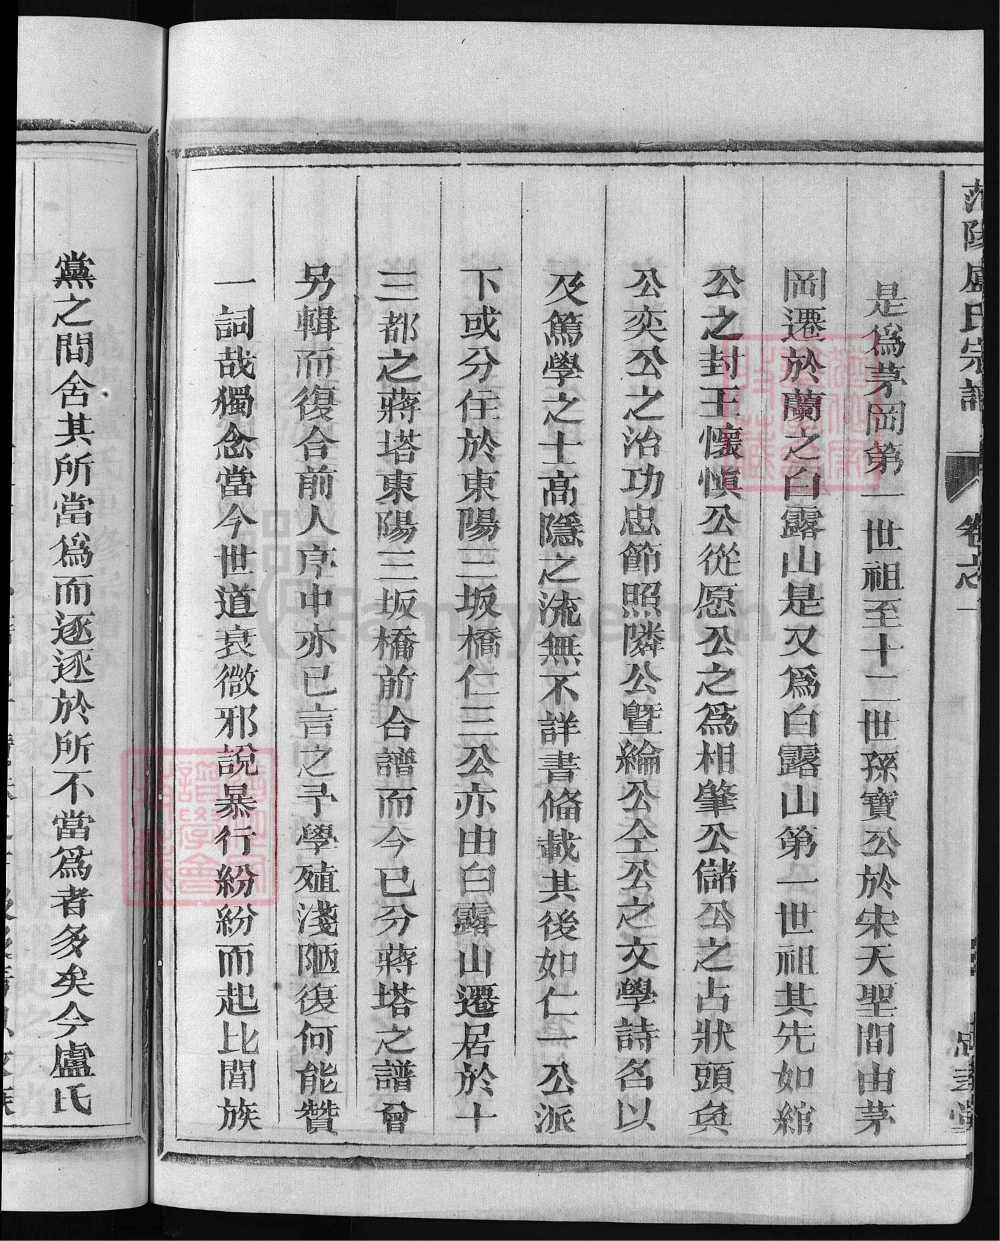 范陽盧氏宗譜 卷之一
是爲茅岡第一世祖至十二世孫寶公於宋天聖間由茅
岡遷於蘭之白露山是又爲白露山第一世祖其先如綰
公之封王懷愼公從愿公之爲相肇公儲公之占狀頭奐
公奕公之治功忠節照隣公曁綸公仝公之文學詩名以
及篤學之士高隱之流無不詳書備載其後如仁一公派
下或分住於東陽三坂橋仁三公亦由白露山遷居於十
三都之蔣塔東陽三坂橋前合譜而今已分蔣塔之譜曾
另輯而復合前人序中亦已言之予學殖淺陋復何能贊
一詞哉獨念當今世道衰微邪說暴行紛紛而起比閭族
黨之間舍其所當爲而逐逐於所不當爲者多矣今盧氏